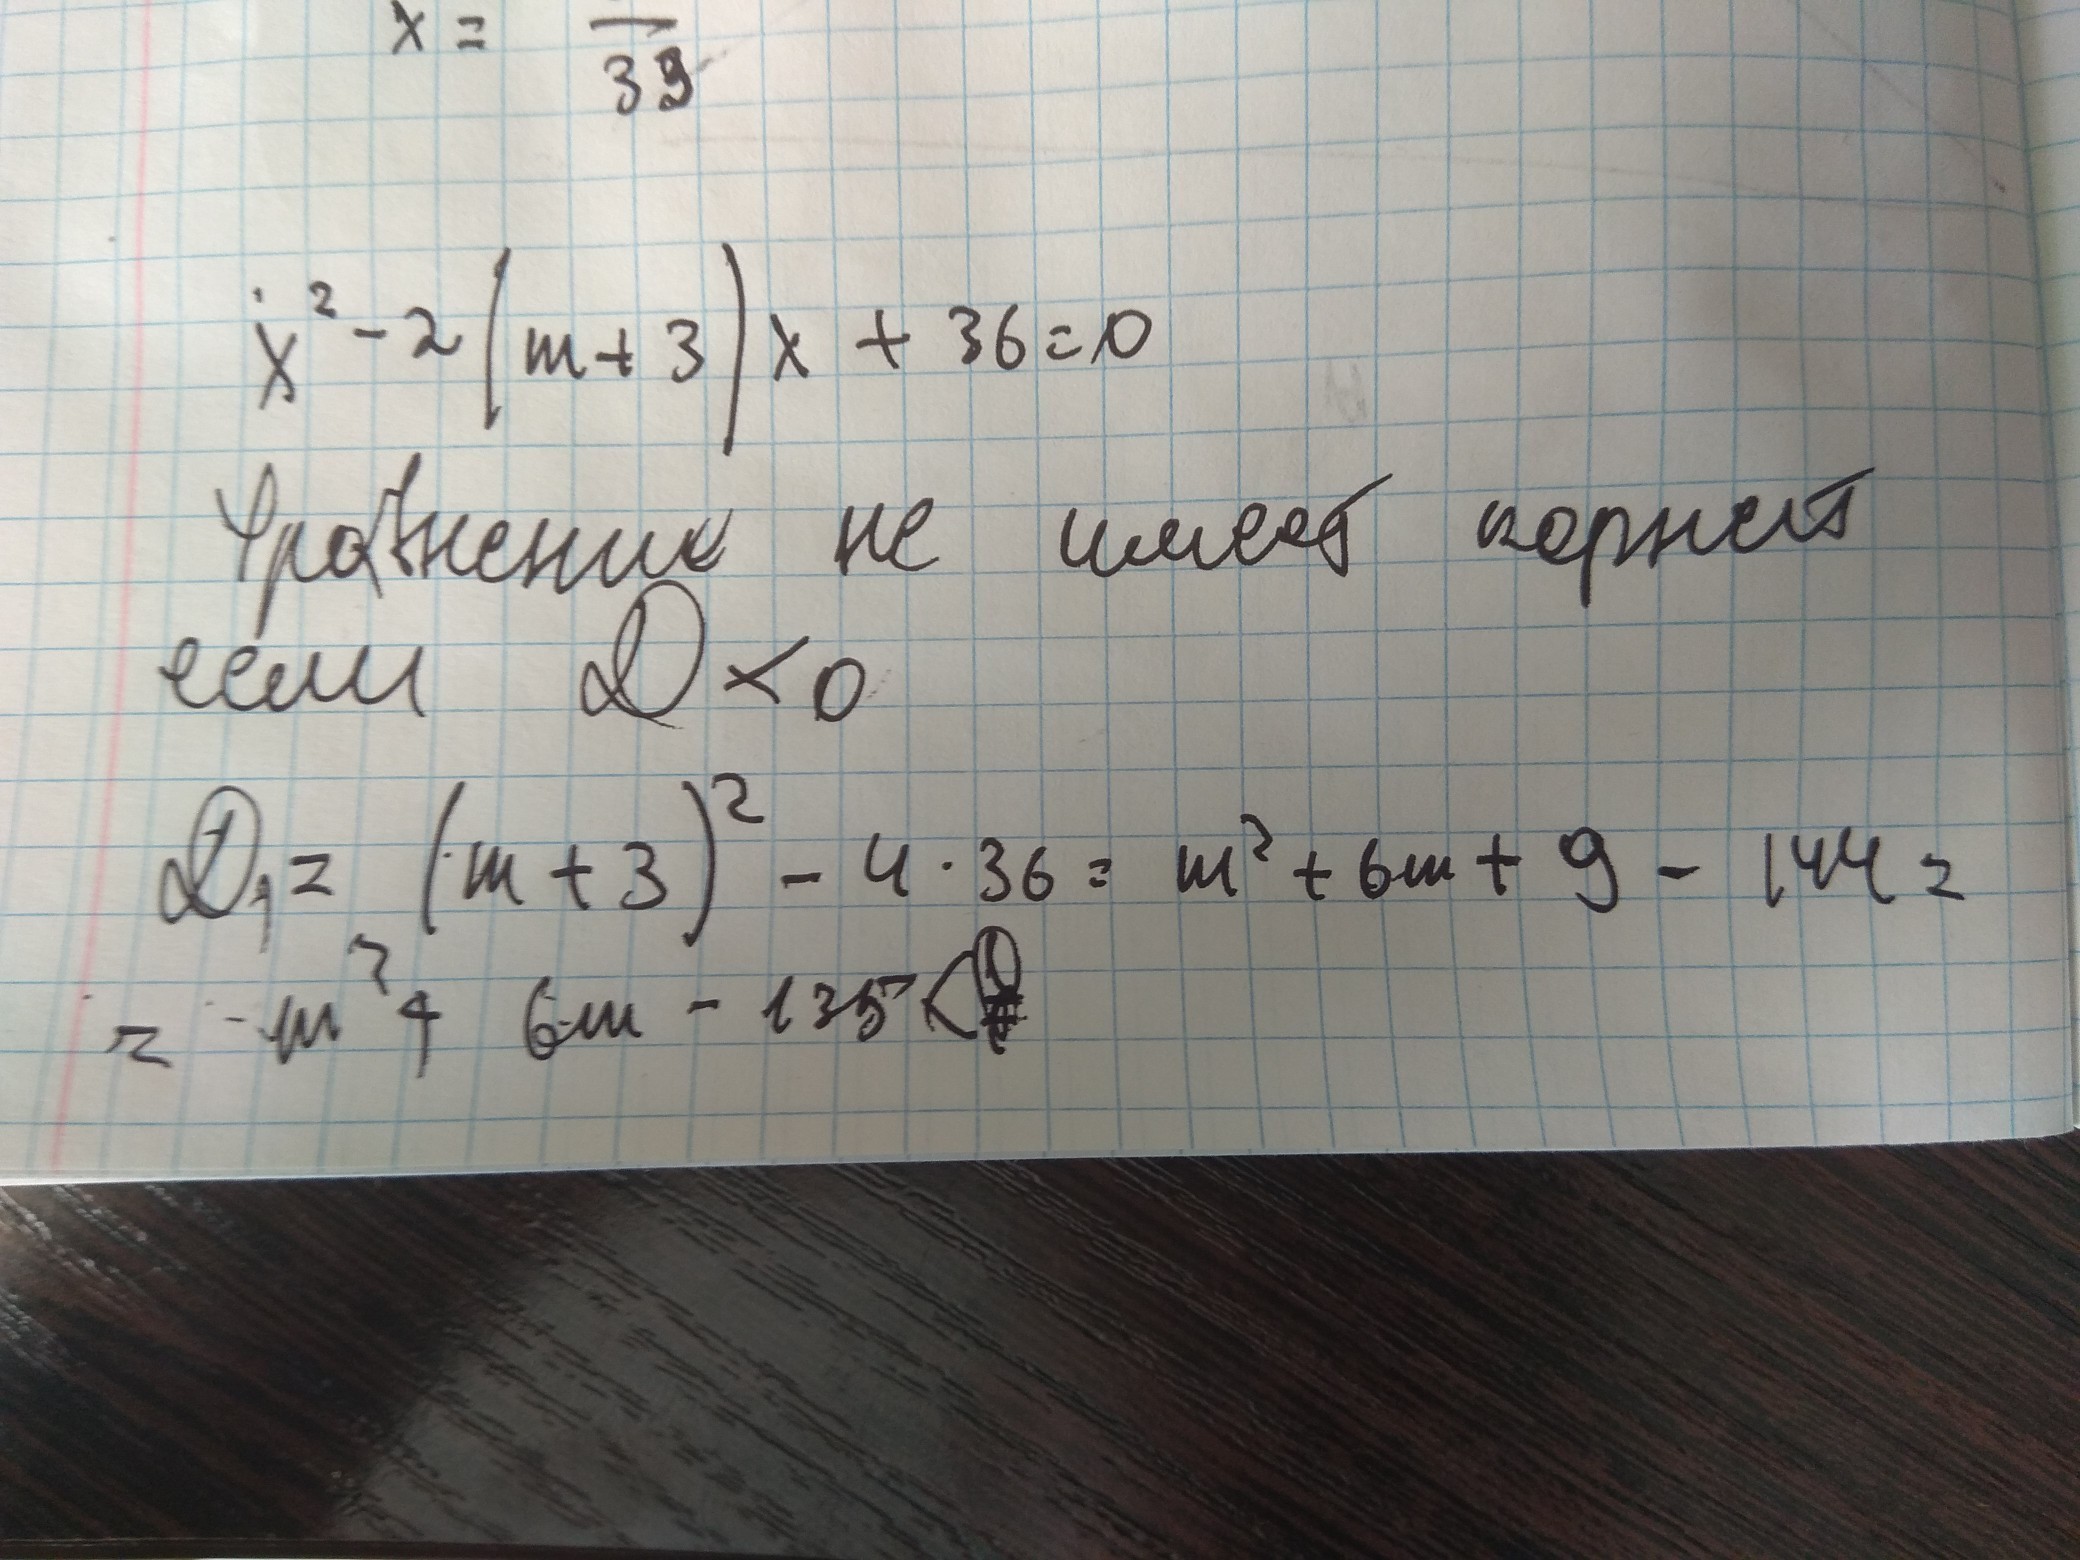 x = —/39
x² - 2(m+3)x + 36 = 0
Уравнение не имеет корней
если D < 0
D₁ = (m+3)² - 4·36 = m² + 6m + 9 - 144 =
= m² + 6m - 135 < 0